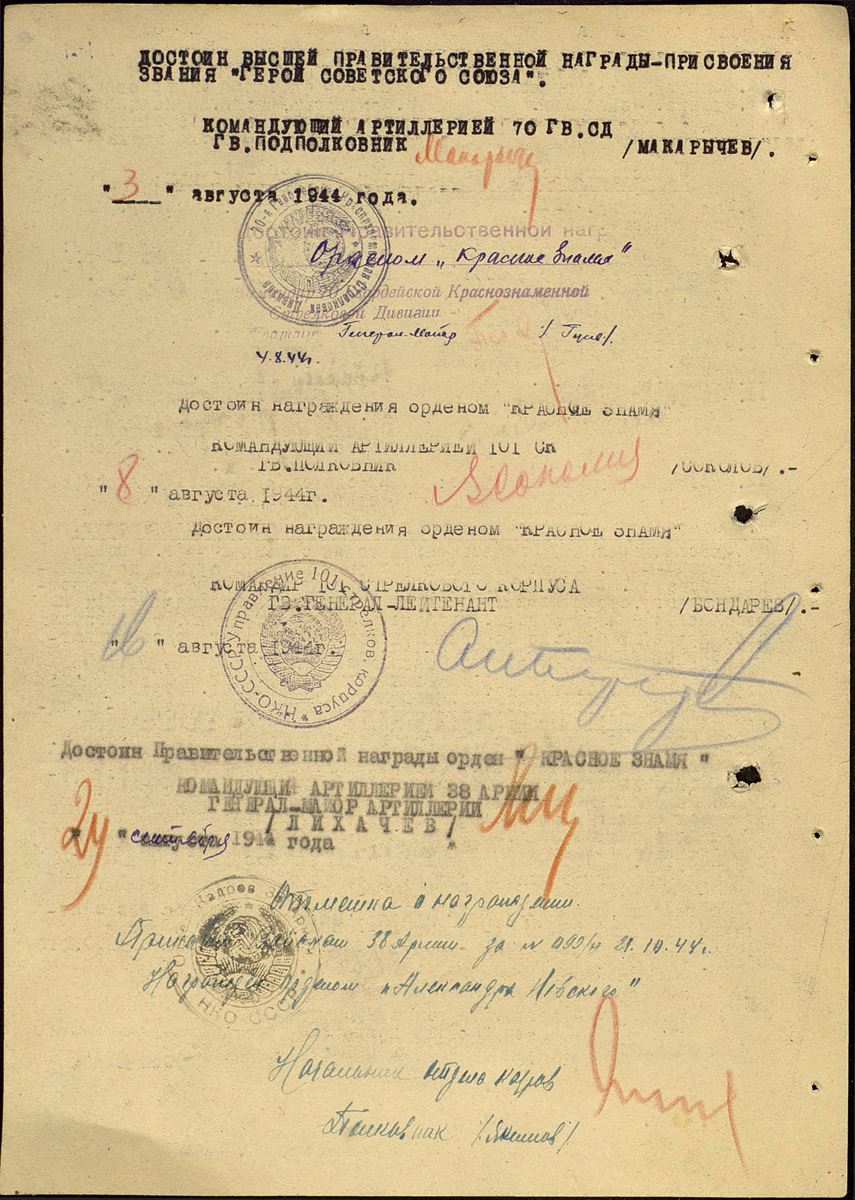 ДОСТОИН ВЫСШЕЙ ПРАВИТЕЛЬСТВЕННОЙ НАГРАДЫ-ПРИСВОЕНИЯ
ЗВАНИЯ "ГЕРОЙ СОВЕТСКОГО СОЮЗА".
КОМАНДУЮЩИЙ АРТИЛЛЕРИЕЙ 70 ГВ.СД
ГВ.ПОДПОЛКОВНИК /МАКАРЫЧЕВ/.
"3" августа 1944 года.
Достоин Правительственной наг
Орденом „Красное Знамя"
70 Гвардейской Краснознаменной
Стрелковой Дивизии
Гвардии Генерал-Майор /Гусев/.
4.8.44г.
Достоин награждения орденом "КРАСНОЕ ЗНАМЯ"
КОМАНДУЮЩИЙ АРТИЛЛЕРИЕЙ 101 СК
ГВ.ПОЛКОВНИК /СОКОЛОВ/.-
"8" августа 1944г.
Достоин награждения орденом "КРАСНОЕ ЗНАМЯ"
КОМАНДИР 101 СТРЕЛКОВОГО КОРПУСА
ГВ.ГЕНЕРАЛ-ЛЕЙТЕНАНТ /БОНДАРЕВ/.-
" " августа 1944г.
НКО-СССР Управление 101 стрелков. корпуса
Достоин Правительственной награды орден " КРАСНОЕ ЗНАМЯ "
КОМАНДУЮЩИ АРТИЛЛЕРИЕЙ 38 АРМИИ
ГЕНЕРАЛ-МАЙОР АРТИЛЛЕРИИ
/ЛИХАЧЕВ/
" сентября 1944 года
Отметка о награждении.
Приказом Войскам 38 Армии за N 099/н 21.10.44г.
Награжден орденом „Александра Невского"
НКО СССР
Начальник отдела кадров
Полковник